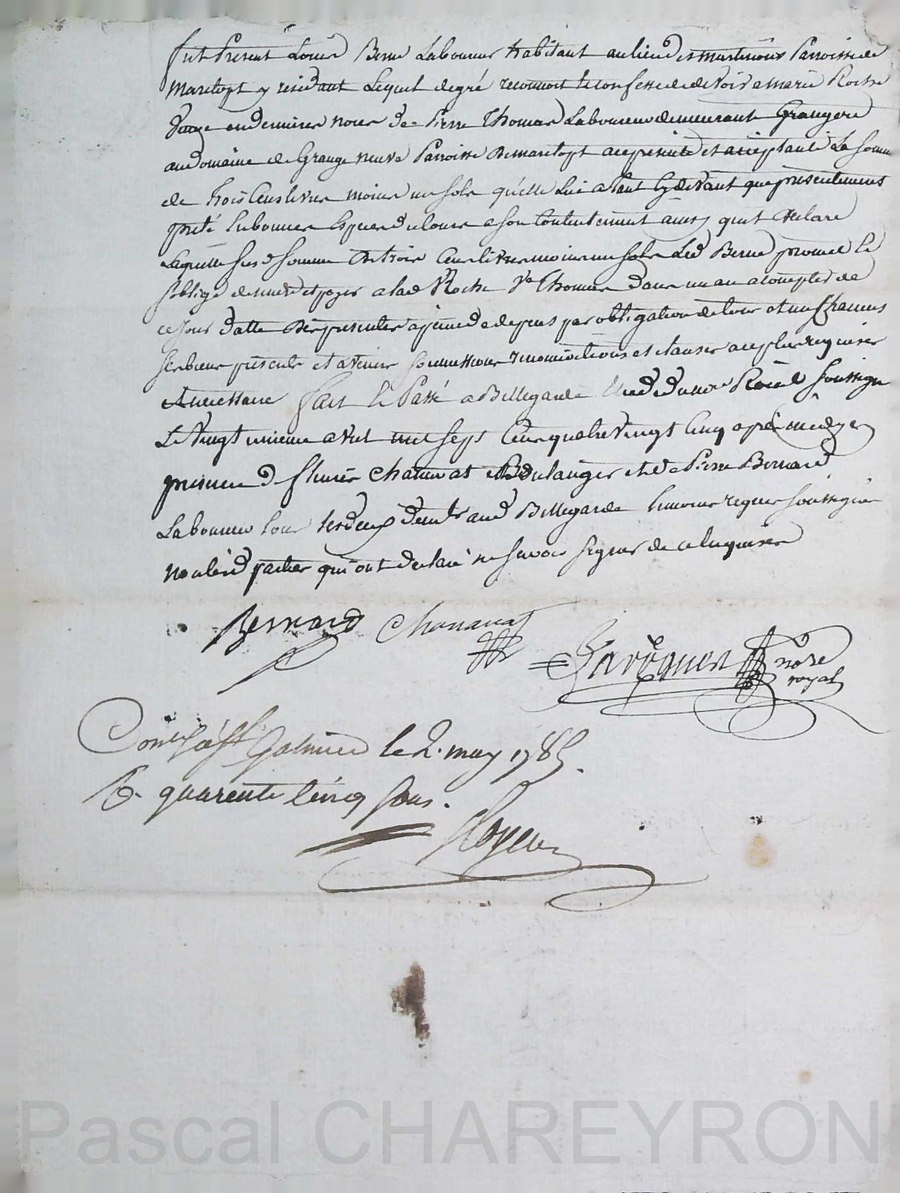 fut Présent Louis Berne Laboureur habitant au lieu de Parroisse de
Maringt y résidant Lequel de gré reconnoit et confesse devoir a marie Roche
veuve en dernieres noces de Pierre Thomas Laboureur demeurant Granger
au domaine de Grange neuve Parroisse de ace présente et acceptante La somme
de trois Cens livres moins un sols qu'elle Lui a tant cy devant que présentement
preté en bonnes Especes du cours a son contentement ainsy qu'il declare
Laquelle susd somme de trois Cens livres moins un sols Led Berne promet et
soblige de rendre et payer a lad Roche Ve Thomas dans un an a compter de
ce jour datte des présentes a peine de depens par obligation de tous et uns chacuns
ses biens présents et avenir soumissions renonciations et clauses a ce plus requises
et necessaires fait et Passé a Bellegarde Etude du nore Roial soussigné
Le vingt unieme avril mil sept Cens quatre vingt Cinq après midy en
présence de Chanavat Boulanger et de Pierre Bernard
Laboureur tous les deux dem^ts aud Bellegarde temoins requis soussignés
non lesd parties qui ont declaré ne savoir signer de ce enquises
Bernard Chanavat
nore
royal
Con^lé à St Galmier le 2. may 1785.
R. quarente Cinq sous.